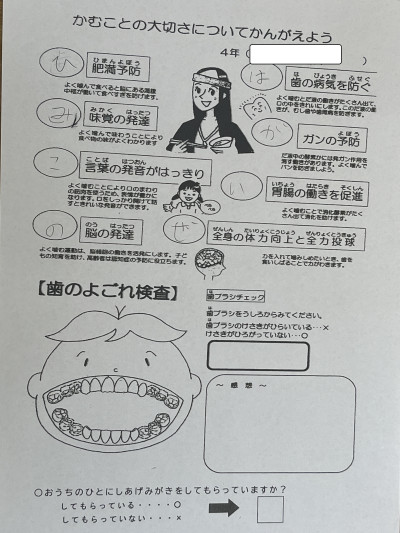 かむことの大切さについてかんがえよう
4年(
ひ
ひまんよぼう
肥満予防
よく噛んで食べると脳にある満腹
中枢が働いて食べすぎを防げます。
み
みかく はったつ
味覚の発達
よく噛んで味わうことにより
食べ物の味がよくわかります
こ
ことば はつおん
言葉の発音がはっきり
よく噛むことにより口のまわり
の筋肉を使うため、表情が豊かに
なります。口をしっかり開けて話
すときれいな発音ができます。
の
のう はったつ
脳の発達
よく噛む運動は、脳細胞の働きを活発にします。子ど
もの知育を助け、高齢者は認知症の予防に役立ちます。
は
は びょうき ふせぐ
歯の病気を防ぐ
よく噛むとだ液の働きがたくさん出て、
口の中をきれいにします。このだ液の働
きが、むし歯や歯周病を防ぎます。
が
よぼう
ガンの予防
だ液中の酵素には発ガン作用を
消す働きがあります。よく噛んで
ガンを防ぎましょう。
い
いちょう はたらき そくしん
胃腸の働きを促進
よく噛むことで消化酵素がたく
さん出て消化を助けます。
ぜ
ぜんしん たいりょくこうじょう ぜんりょくとうきゅう
全身の体力向上と全力投球
力を入れて噛みしめたいとき、歯を
食いしばることで力がわきます。
【歯のよごれ検査】
歯ブラシチェック
歯ブラシをうしろからみてください。
歯ブラシのけさきがひらいている・・・×
けさきがひろがっていない・・・○
～ 感 想 ～
○おうちのひとにしあげみがきをしてもらっていますか?
してもらっている・・・・○
してもらっていない・・・×